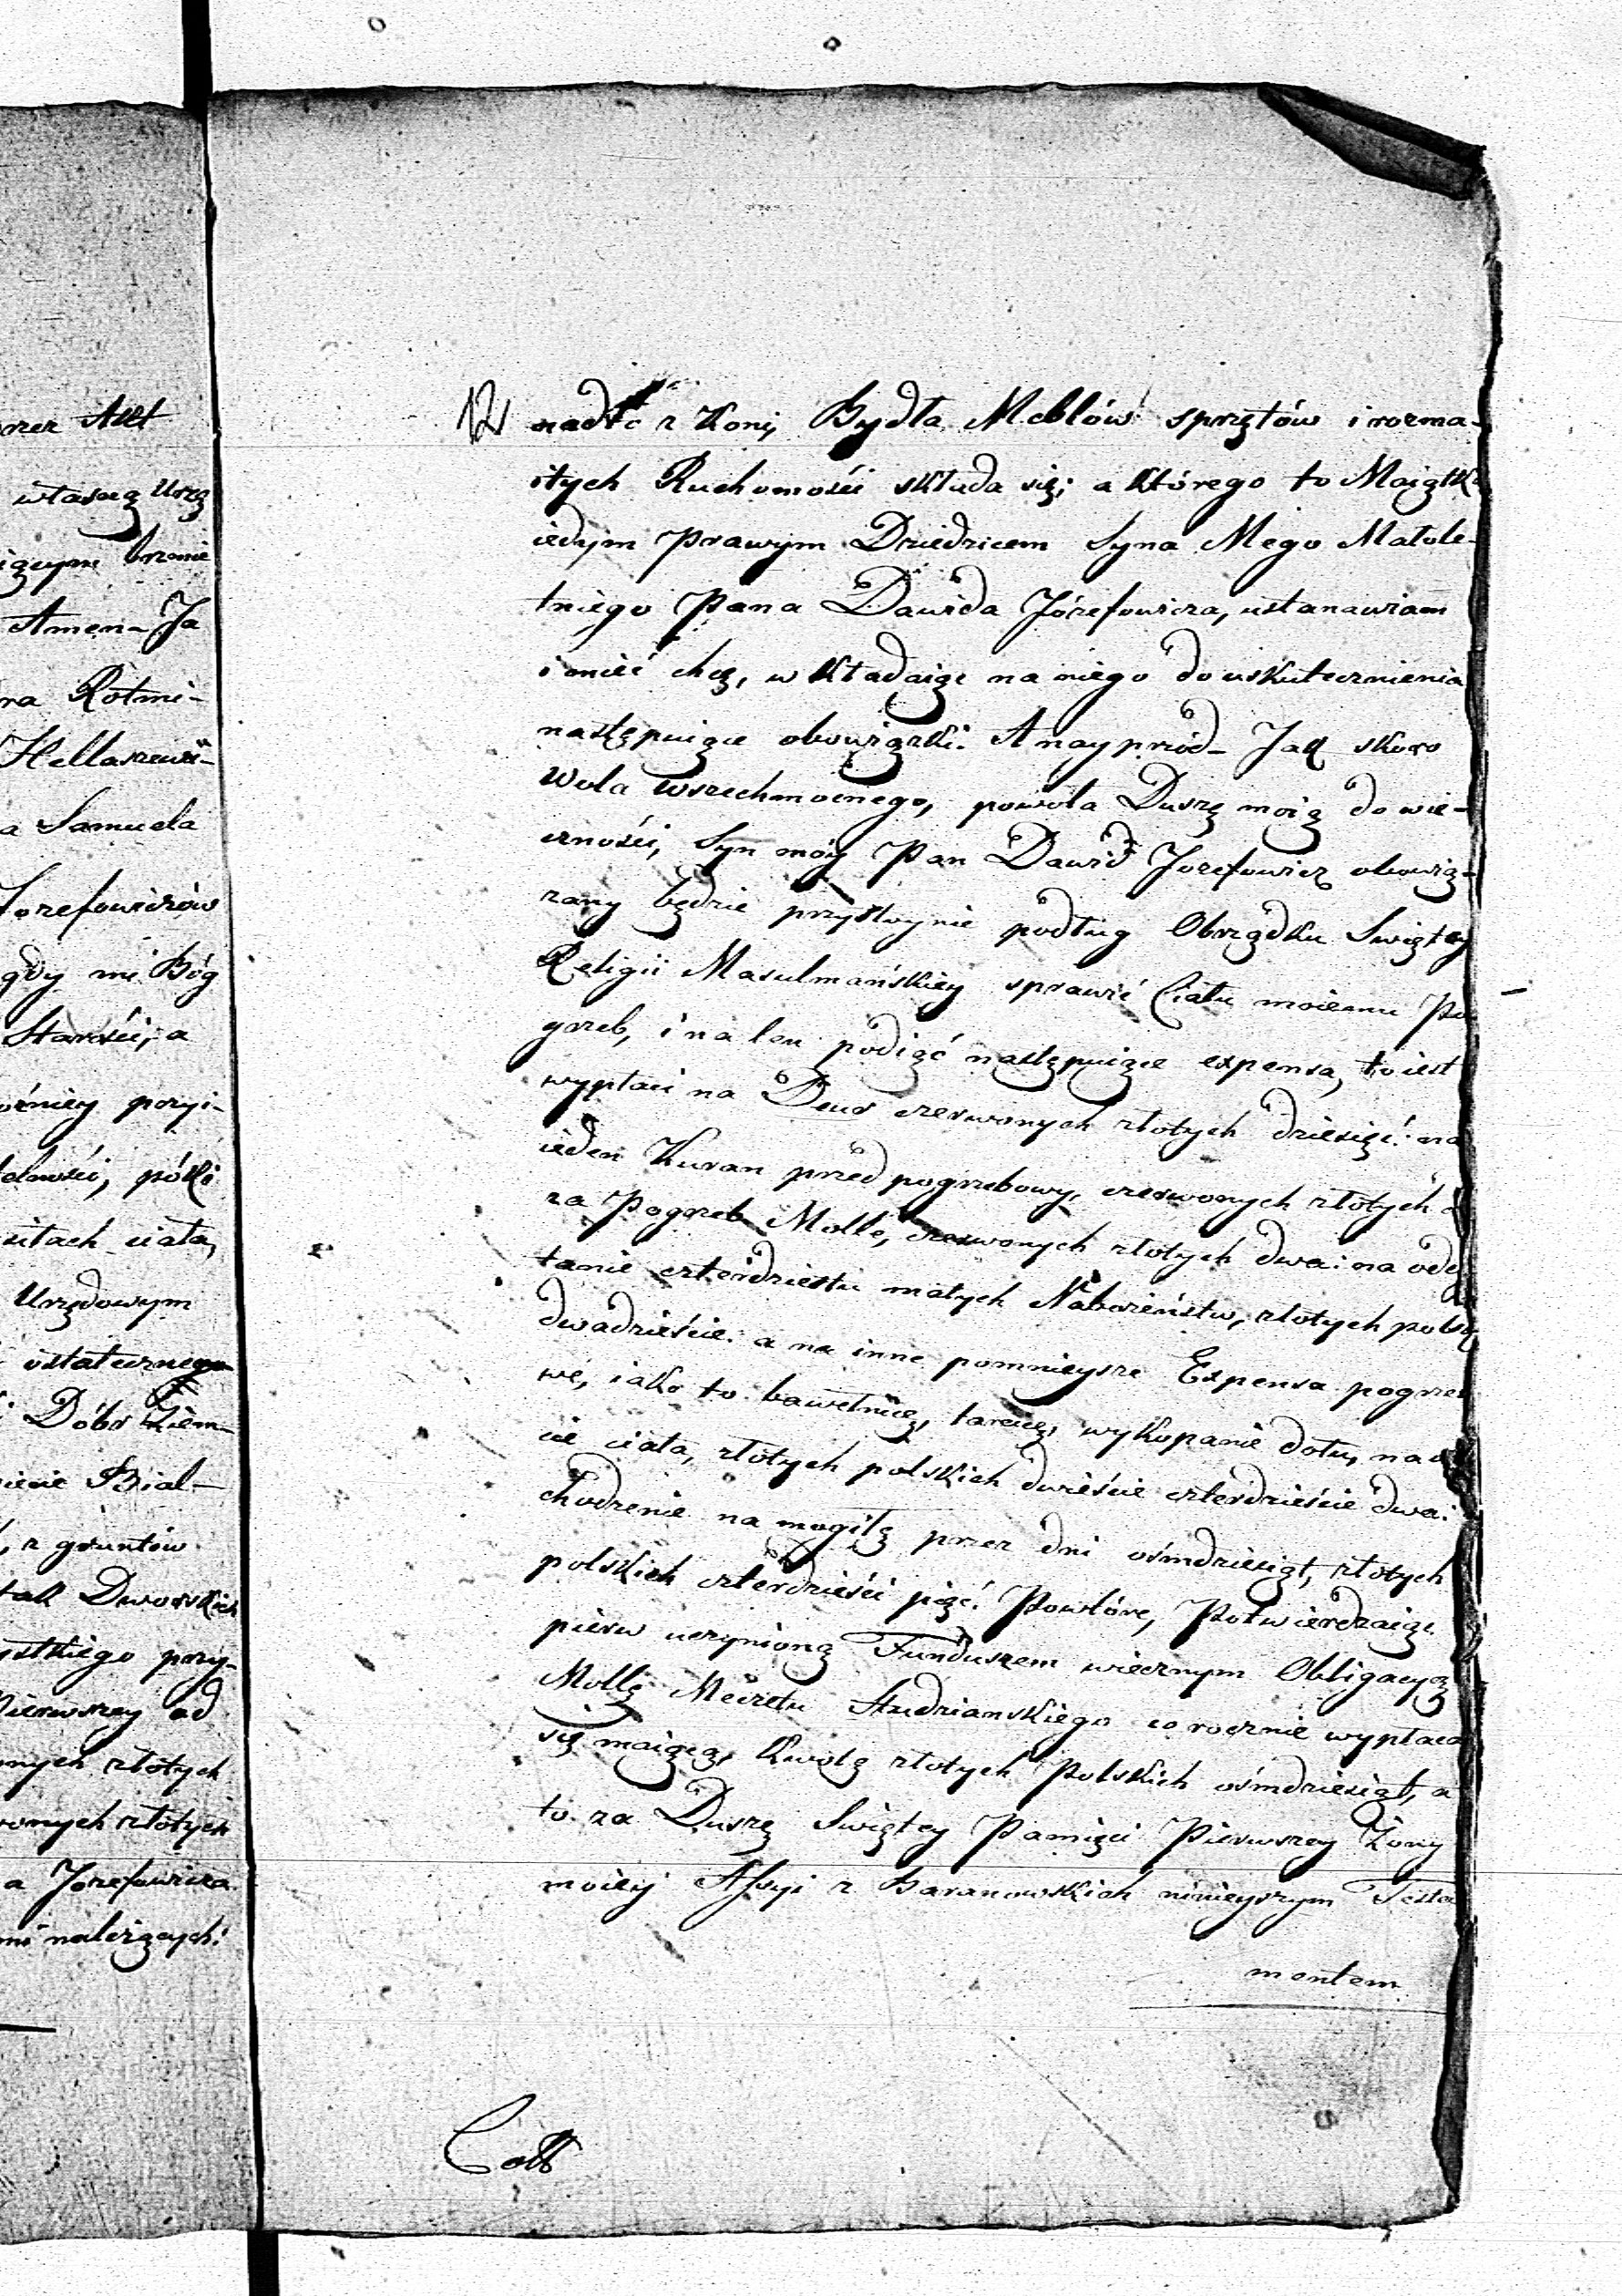 rzez Akt
własną Urzą
iącym brzmie
Amen - Ja
na Rotmi-
Hellaszewi-
a Samuela
Jozefowiczów
gdy mi Bóg
Starości, a
oźniey przyi-
telności, póki
siłach ciała,
Urzędowym
ostatecznego
i Dóbr Ziem-
iecie Bial-
, z gruntów
tak Dworskich
ystkiego przy-
Pierwszey od
nych złotych
wonych złotych
a Jozefowicza
mi należących:
nadto z Koni, Bydła, Meblów sprzętów i rozma-
itych Ruchomości składa się; a którego to Maiątk
iedynym Prawym Dziedzicem Syna Mego Małole-
tniego Pana Dawida Józefowicza, ustanawiam
i mieć chcę, w kładaiąc na niego do uskutecznienia
następuiące obowiązki. A nayprzód - Jak skoro
Wola Wszechmocnego, powoła Duszę moią do wie-
czności, Syn móy Pan Dawid Jozefowicz obowią-
zany będzie przystoynie podług Obrządku Swiętey
Religii Masulmańskiey sprawić Ciału moiemu Po
grzeb, i na ten podiąć następuiące expensa, to iest
wypłaci na Deur czerwonych złotych dziesięć: na
ieden Kuran przed pogrzebowy, czerwonych złotych
za Pogrzeb Molle, czerwonych złotych dwa: na odc
tanie czterdziestu małych Nabożeństw, złotych polsk
dwadzieście: a na inne pomnieysze Expensa pogrze
we, iako to: bawełnicę, tarcicę, wykopanie dołu,
cie ciała, złotych polskich dwieście czterdzieście dwa:
chodzenie na mogiłę przez dni ośmdziesiąt, złotych
polskich czterdzieści pięć. Powtóre, Potwierdzaiąc
pierw uczynioną Funduszem wiecznym Obligacyą
Mollę Meczetu Studzianskiego corocznie wypłaca
się maiącą, kwotę złotych Polskich ośmdziesiąt, a
to za Duszę Swiętey Pamięci Pierwszey Żony
moiey z Baranowskich ninieyszym Testa
mentem